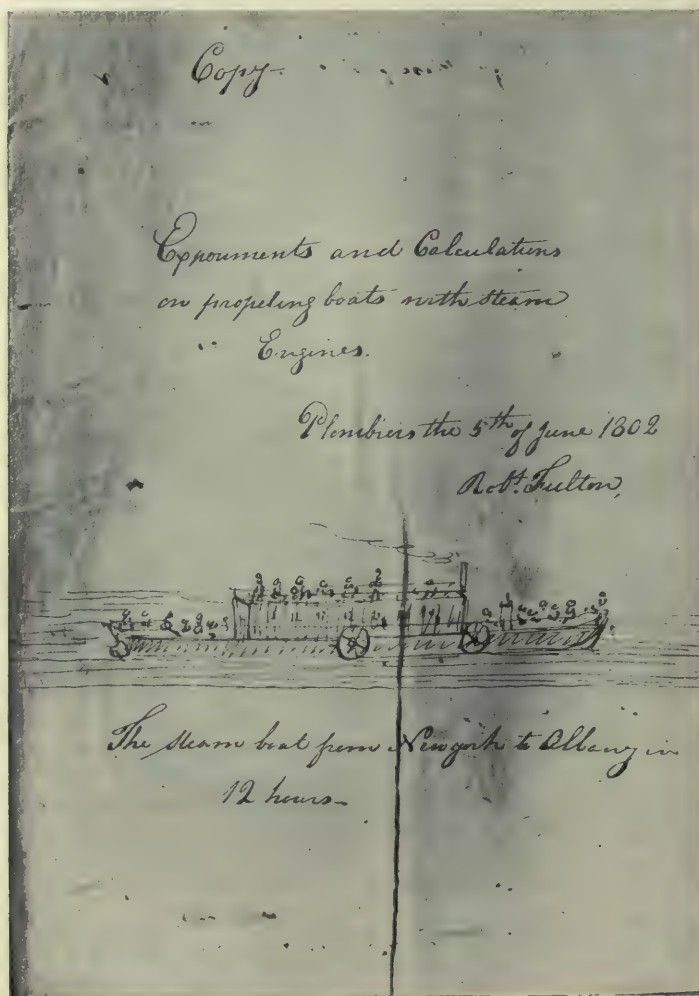 Copy-
Experiments and Calculations
on propeling boats with steam
Engines.
Plombiers the 5th of June 1802
Robt. Fulton,
The steam boat from Newyork to Albany in
12 hours-